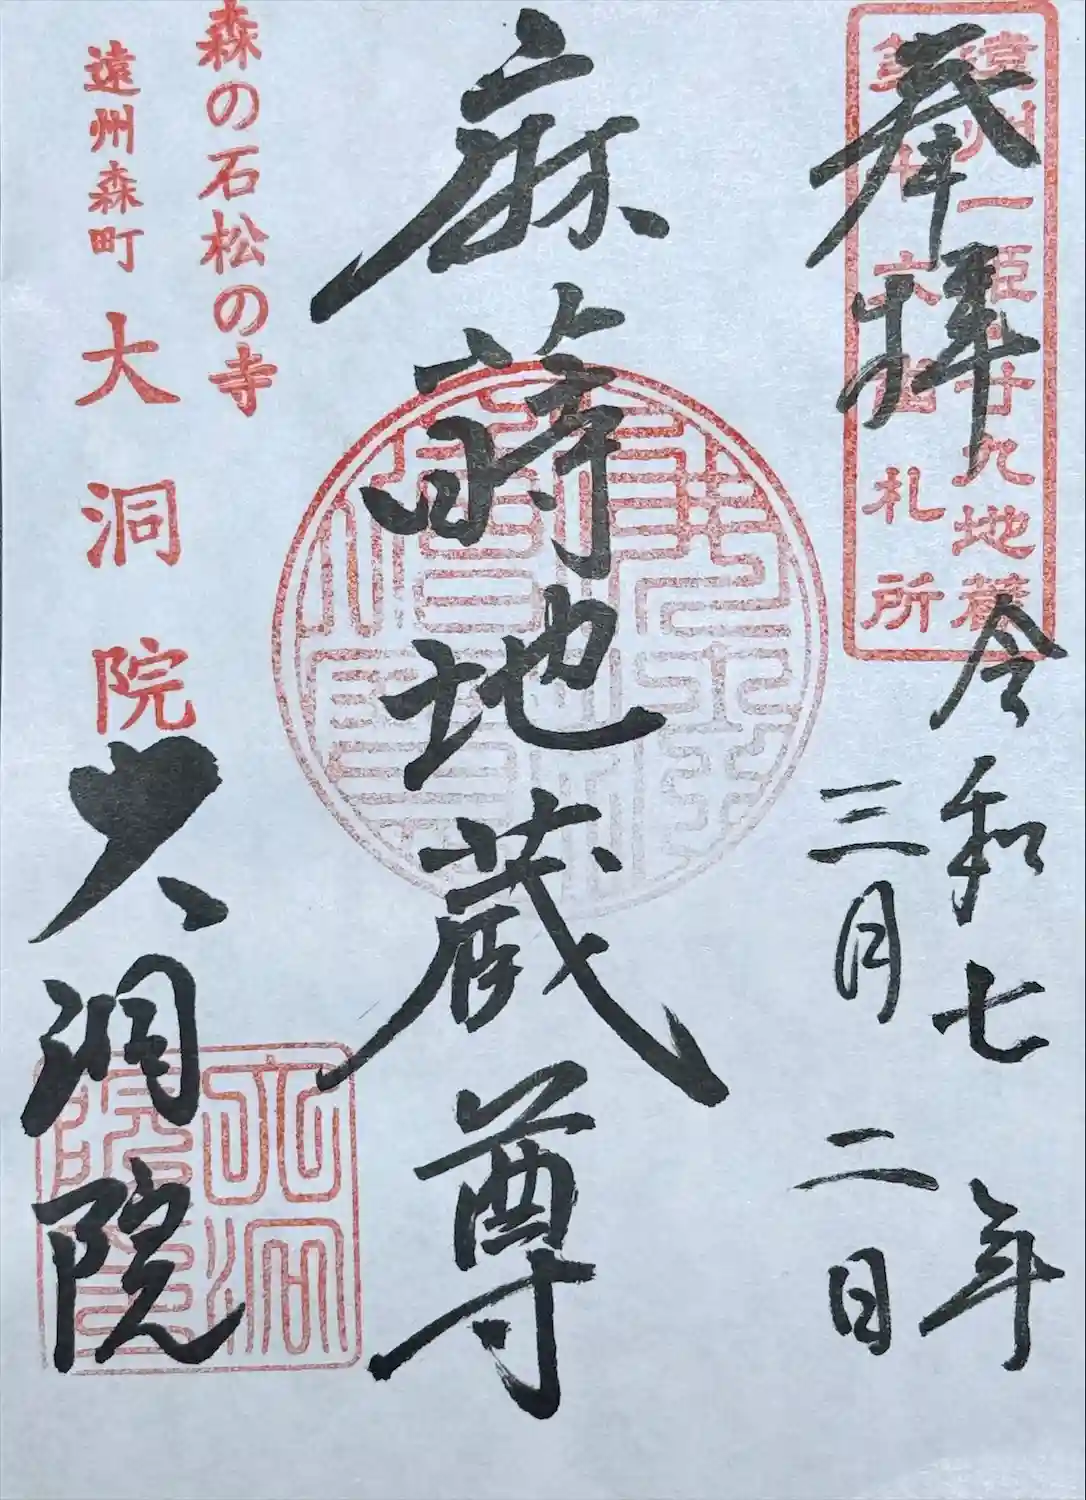 奉拝
遠州一圓廿九地蔵
第廿六番札所
令和七年
三月二日
麻蒔地蔵尊
森の石松の寺
遠州森町
大洞院
大洞院